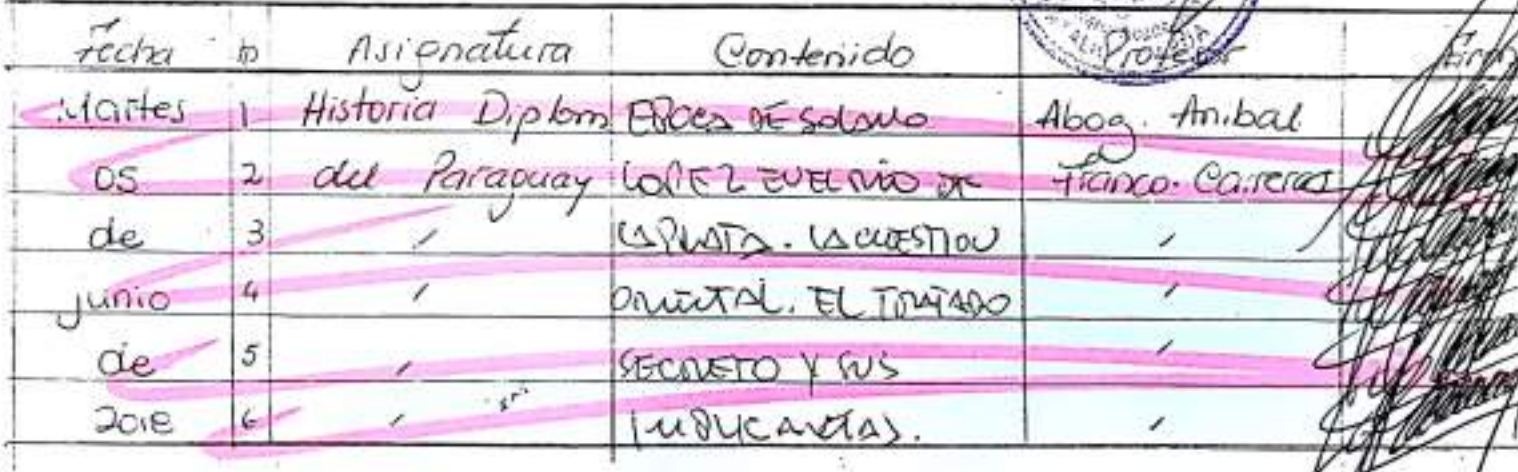 Fecha h Asignatura Contenido Profesor Firma
Martes 1 Historia Diplom EPOCA DE SOLANO Abog. Anibal
05 2 del Paraguay LOPEZ EN EL RIO DE Franco. Carreras
de 3 " LA PLATA. LA CUESTION "
junio 4 " ORIENTAL. EL TRATADO "
de 5 " SECRETO Y SUS "
2018 6 " "